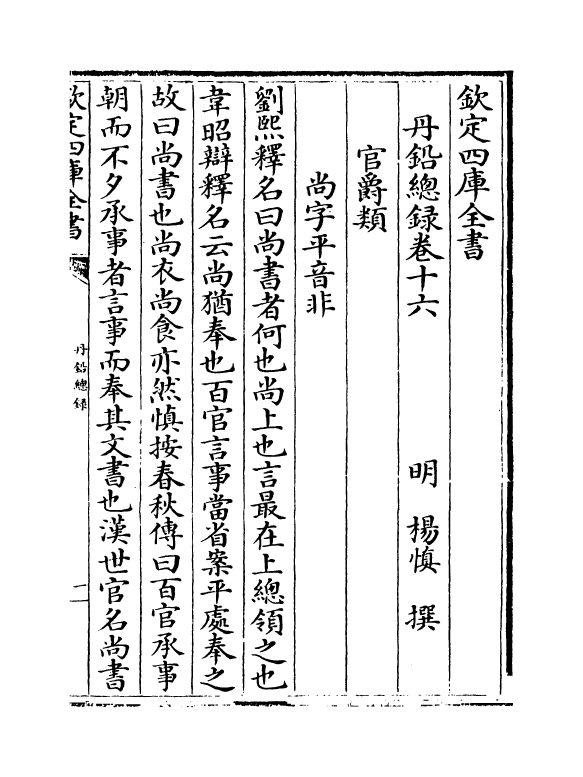 欽定四庫全書
丹鉛總録卷十六　明　楊慎　撰
官爵類
尚字平音非
劉熙釋名曰尚書者何也尚上也言最在上總領之也
韋昭辯釋名云尚猶奉也百官言事當省案平處奉之
故曰尚書也尚衣尚食亦然慎按春秋傳曰百官承事
朝而不夕承事者言事而奉其文書也漢世官名尚書
欽定四庫全書
丹鉛總録